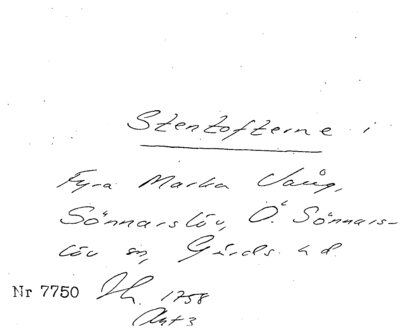 Stentofterne i
Fyra Marka Vång,
Sönnarslöv, Ö. Sönnars-
löv sn, Gärds hd.
Nr 7750 Lh. 1758
Akt 3